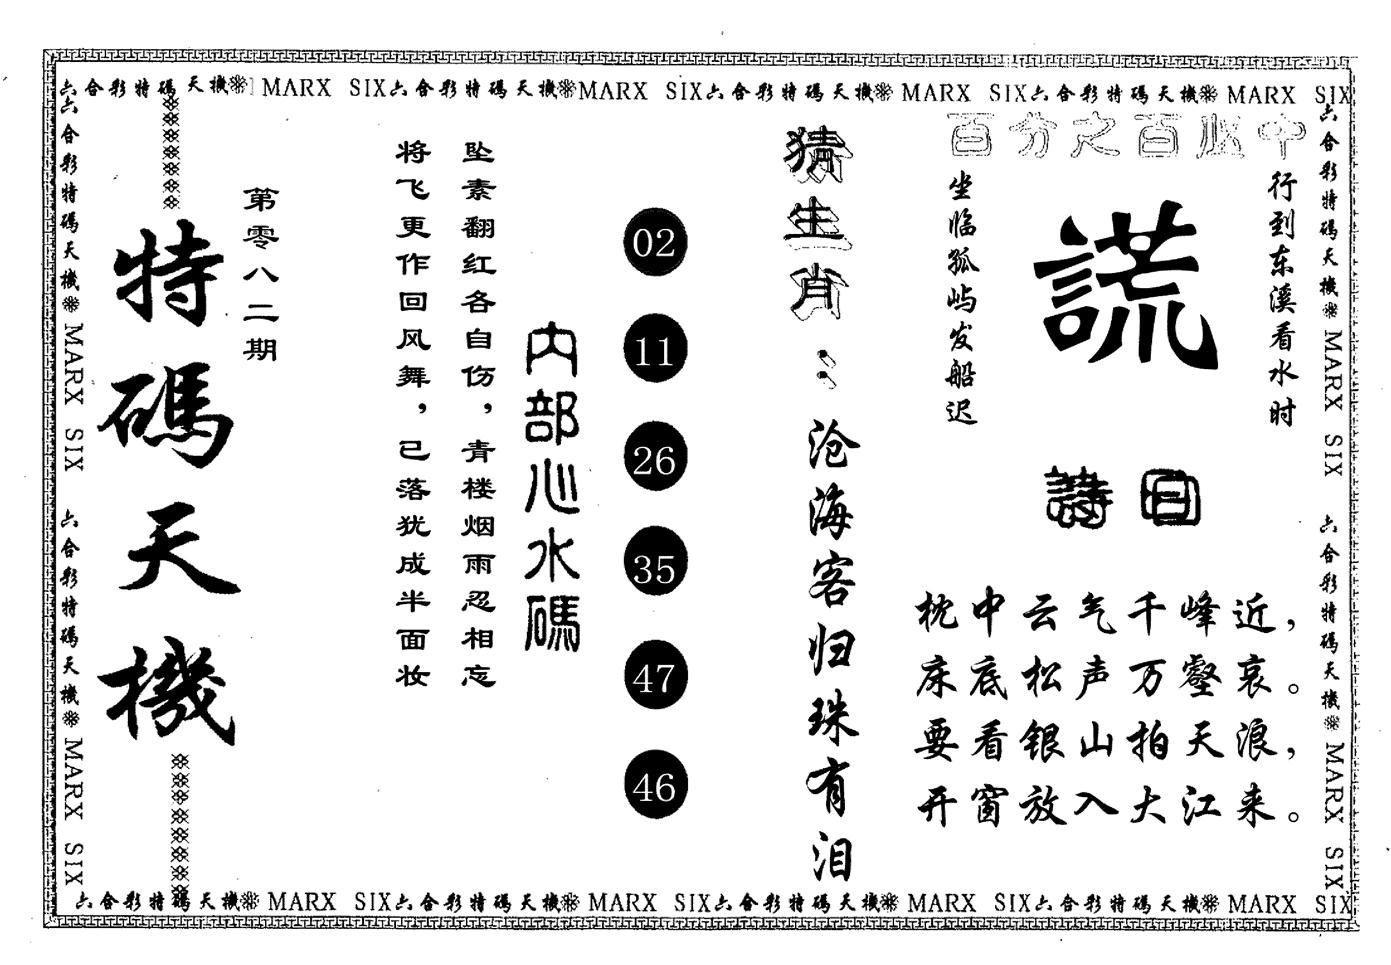 六合彩特碼天機 MARX SIX六合彩特碼天機 MARX SIX六合彩特碼天機 MARX SIX六合彩特碼天機 MARX SIX
六合彩特碼天機 MARX SIX 六合彩特碼天機 MARX SIX
特碼天機
第零八二期
将飞更作回风舞，已落犹成半面妆
坠素翻红各自伤，青楼烟雨忍相忘
内部心水碼
02
11
26
35
47
46
猜生肖：沧海客归珠有泪
百分之百必中
行到东溪看水时
謊
坐临孤屿发船迟
枕中云气千峰近，
床底松声万壑哀。
要看银山拍天浪，
开窗放入大江来。
六合彩特碼天機 MARX SIX 六合彩特碼天機 MARX SIX
六合彩特碼天機 MARX SIX六合彩特碼天機 MARX SIX六合彩特碼天機 MARX SIX六合彩特碼天機 MARX SIX